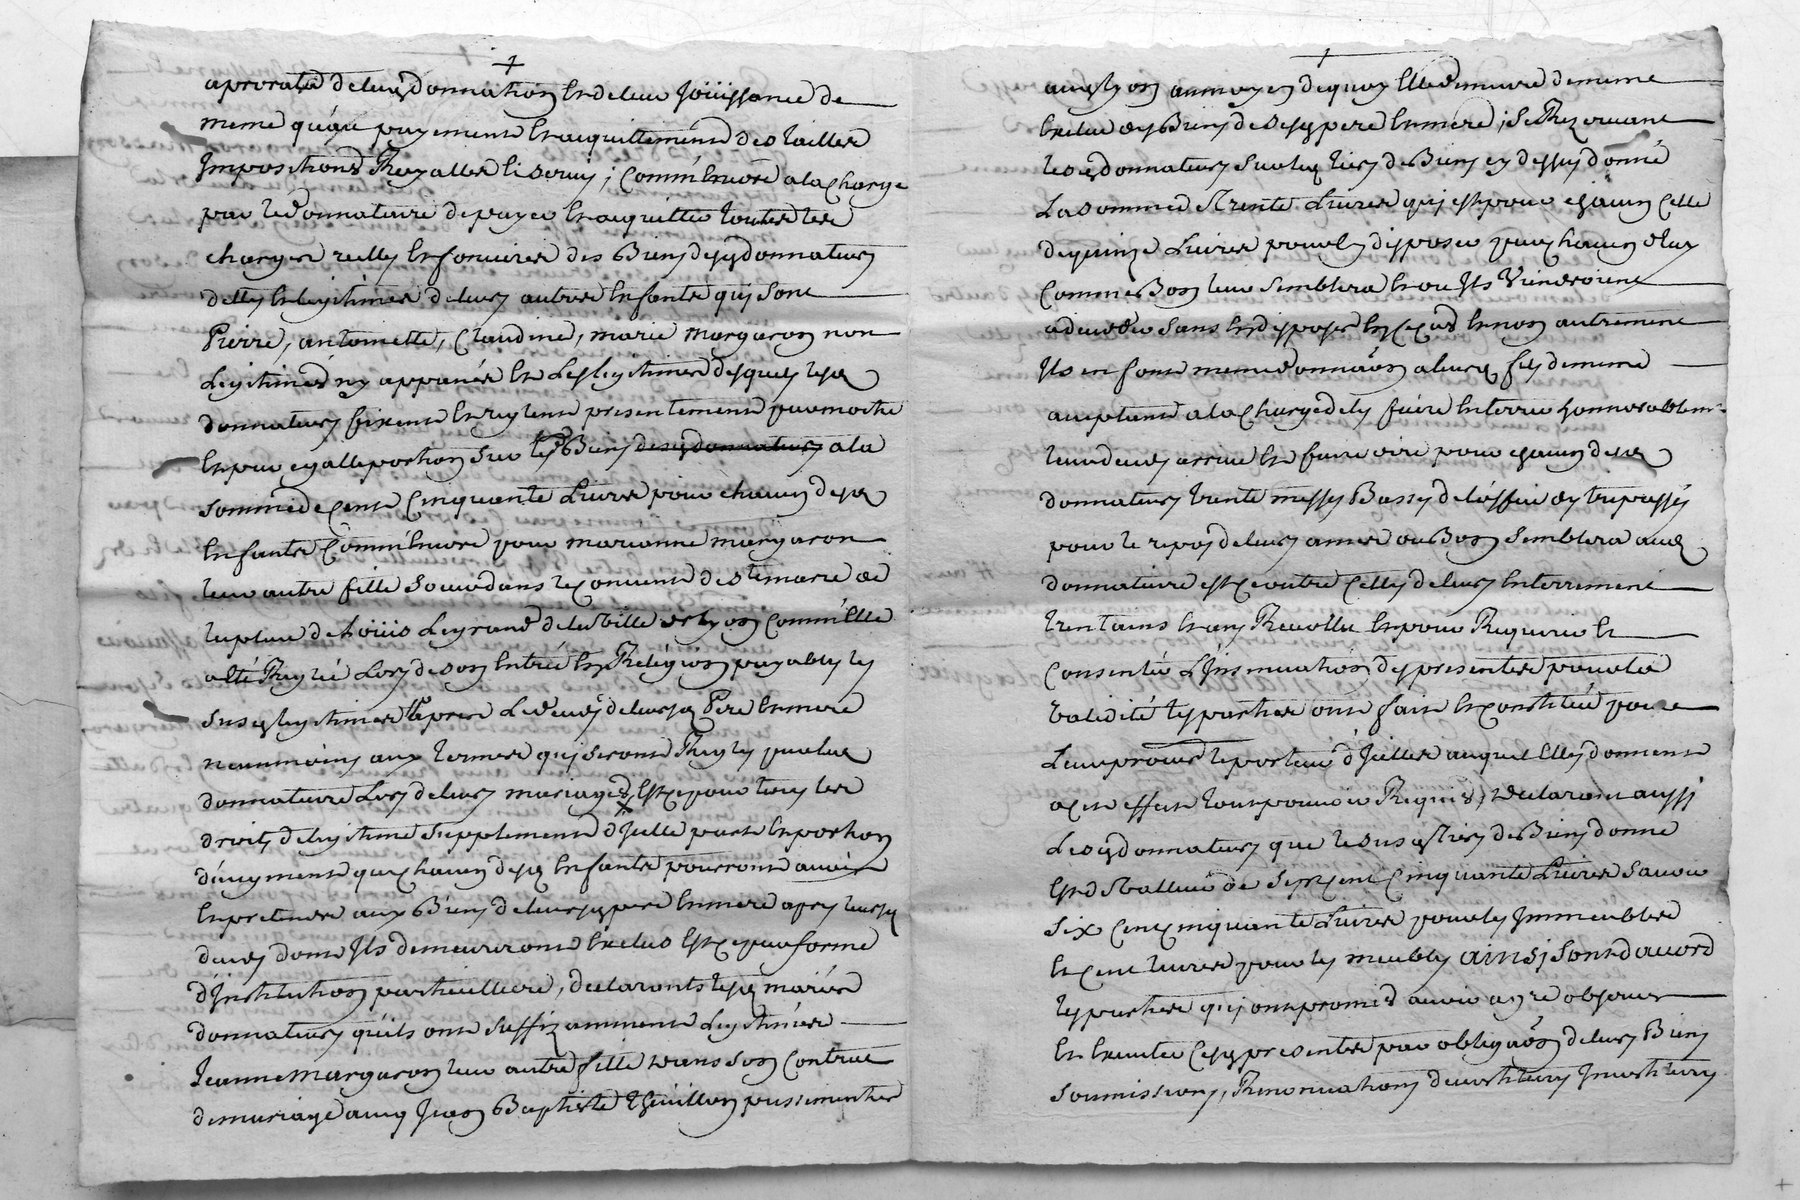 aprorata de leurd donnation et de leur joüissance de
meme qu'au payement et acquittement des tailles
impositions Royalles et servis ; comm'encore a la charge
par le donnataire de payer et acquitter toutes les
charges reelles et foncieres des biens desd donnateurs
dettes et legitimes de leurs autres enfants qui sont
Pierre, antoinette, Claudine, marie margaron non
legitimés ny appanés et lesd legitimes desquels lesd
donnateurs fixent et reglent presentement par moitié
et par egalle portion sur lesd Biens desd donnateurs a la
somme de cent cinquante Livres pour chacun desd
enfants comm'encore pour marianne margaron
leur autre fille soeur dans le couvent de ste marie de
de Loüis Le grand de la ville de Lyon comm'elle
a été Reglé Lors de son entrée en Religion payables les
susd legitimes apres le deces de leursd Pere et mere
neanmoins aux termes qui seront Reglés par led
donnataire Lors de leurs mariages, et ce pour tous les
droits de legitime supplement d'jcelle part et portion
d'augment que chacun desd enfants pourront avoir
et pretendre aux Biens de leursd pere et mere apres leursd
deces dont jls demeureront exclus et ce par forme
d'Institution particulliere, declarants lesd mariés
donnateurs qu'ils ont suffizamment legitimée
Jeanne margaron leur autre fille dans son contrat
de mariage avec Jean Baptiste Thuillon passementier
a Lyon au moyen de quoy elle demeure de meme
exclue des Biens de sesd pere et mere ; se Rezervant
lesd donnateurs sur led tiers de Biens cy dessus donné
La somme de trente Livres qui est pour chacun celle
de quinze Livres pour en disposer par chacun d'eux
comme Bon leur semblera et ou jls viendroient
a deceder sans en disposer en ce cas et non autrement
jls en font meme donnaon aleurd fils de meme
acceptant a la charge de les faire enterrer honnorablemt
leur deces arrivé et faire dire pour chacun desd
donnateurs trente messes Basses de l'office des trepassés
pour le repos de leurs ames ou Bon semblera aud
donnataire et ce outre celles de leurs enterrement
trentains et an Revollu et pour Requerir et
consentir L'Insinuation des presentes pour la
validité les parties ont fait et constitué pour
Leur procur le porteur d'jcelles auquel elles donnent
a cet effet tout pouvoir Requis, declarant aussi
Lesd donnateurs que le susd tiers de Biens donné
est de valleur de sept cent cinquante Livres savoir
six cent cinquante Livres pour les jmmeubles
et cent livres pour les meubles ainsi sont d'accord
les parties qui ont promis avoir a gré observer
et executer cesd presentes par obligaon de leurs Biens
soumissions, Renonciations